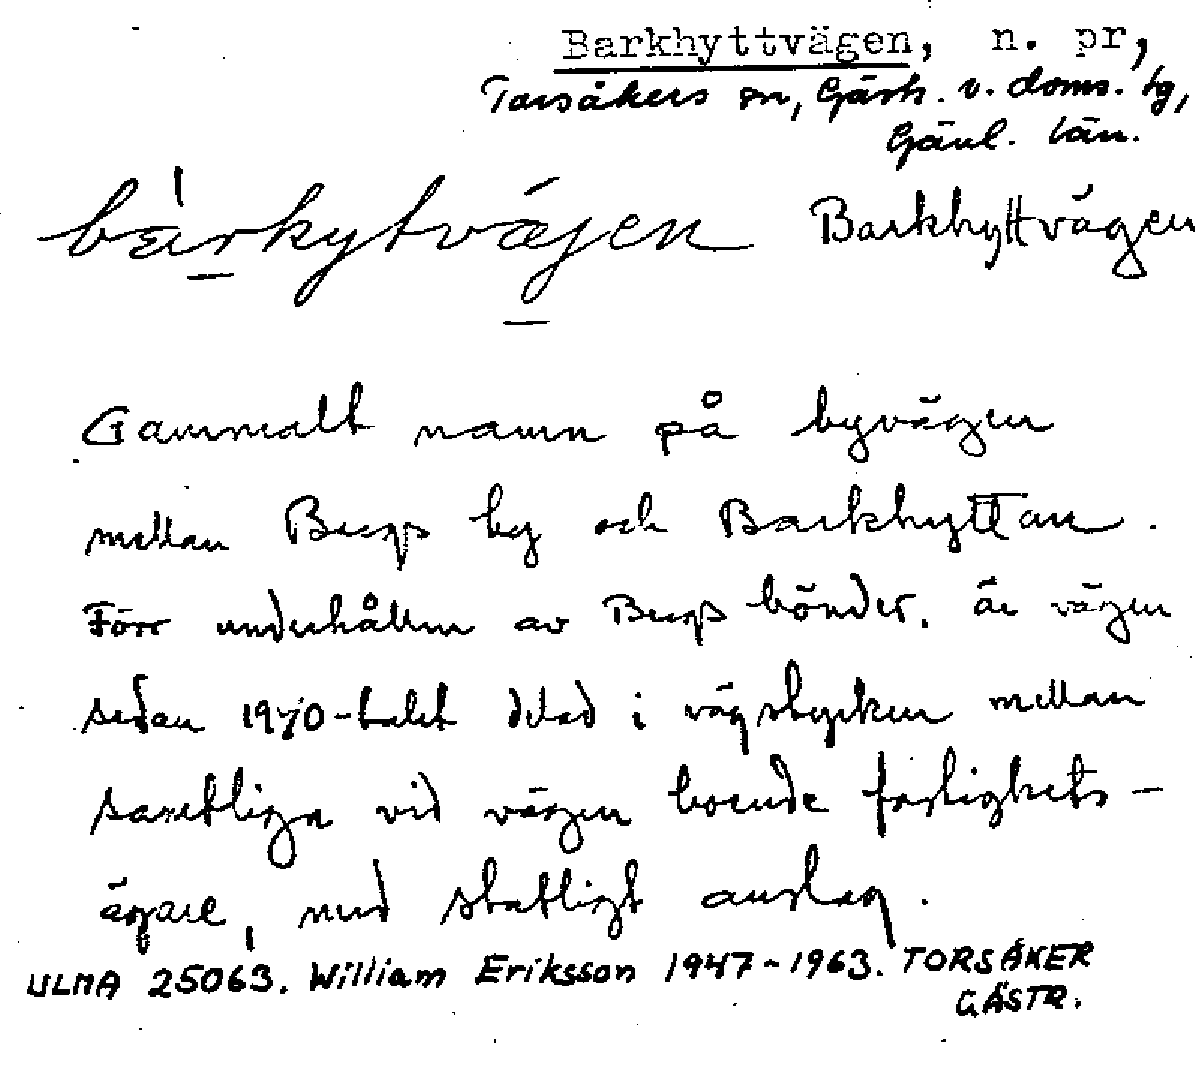 Barkhyttvägen, n. pr,
Torsåkers sn, Gästr. v. doms. tg,
Gävl. län.
bàrkytväjen Barkhyttvägen
Gammalt namn på byvägen
mellan Bergs by och Barkhyttan.
Förr underhållen av Bergs bönder, är vägen
sedan 1940-talet delad i vägstycken mellan
samtliga vid vägen boende fastighets-
ägare, med statligt anslag.
ULMA 25063. William Eriksson 1947-1963. TORSÅKER
GÄSTR.